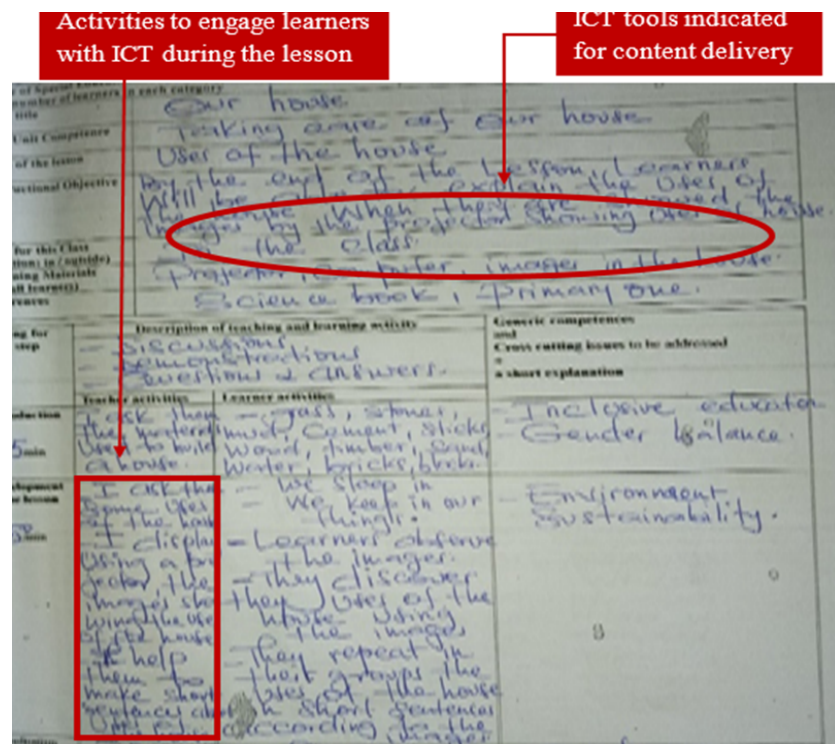 Activities to engage learners
with ICT during the lesson
ICT tools indicated
for content delivery
of Special
number of learners in each category
title
Our house
Unit Competence
Taking care of our house
of the lesson
Uses of the house
uctional Objective
By the end of the Lesson, Learners
will be able to explain the uses of
the house when they are showed the
images by the projector showing uses of house
for this Class
tion: in / outside)
in the class.
ning Materials
all learners)
Projector, computer, images in the house.
rences
Science book, Primary one.
ng for
step
Description of teaching and learning activity
- Discussions
- Demonstrations
- Questions & answers.
Generic competences
and
Cross cutting issues to be addressed
+
a short explanation
Teacher activities
Learner activities
oduction
5min
I ask them
the materials
used to build
a house.
- grass, stones,
mud, cement, sticks
wood, timber, sand,
water, bricks, blocks.
- Inclusive education
- Gender balance.
elopment
lesson
min
I ask the
some uses
of the house
- I display
using a pro
jector, the
images sho
wing the use
of the house
I help
them to
make short
sentences
- We sleep in
- We keep in our
things.
- Learners observe
the images.
- They discover
they uses of the
house using
the images
- They repeat in
their groups the
uses of the house
in short sentences
according to the
images
- Environment
Sustainability.